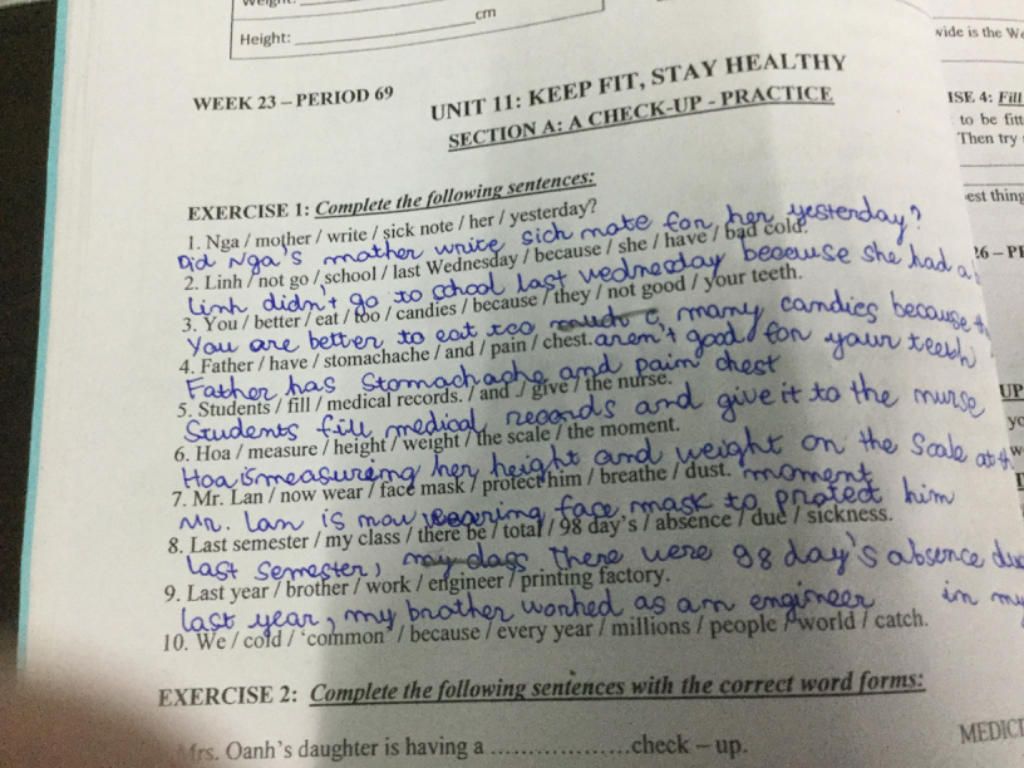 Weight:
cm
Height:
WEEK 23 – PERIOD 69
UNIT 11: KEEP FIT, STAY HEALTHY
SECTION A: A CHECK-UP - PRACTICE
EXERCISE 1: Complete the following sentences:
1. Nga / mother / write / sick note / her / yesterday?
Did Nga's mother write sich note for her yesterday?
2. Linh / not go / school / last Wednesday / because / she / have / bad cold.
Linh didn't go to school last wednesday because she had a
3. You / better / eat / too / candies / because / they / not good / your teeth.
You are better to eat too much many candies because
4. Father / have / stomachache / and / pain / chest. aren't good for your teeth
Father has stomachache and paim chest
5. Students / fill / medical records. / and / give / the nurse.
Students fill medical records and give it to the nurse
6. Hoa / measure / height / weight / the scale / the moment.
Hoa is measuring her height and weight on the Scale at
7. Mr. Lan / now wear / face mask / protect him / breathe / dust. moment
Mr. Lan is now wearing face mask to protect him
8. Last semester / my class / there be / total / 98 day's / absence / due / sickness.
Last semester, my class There were 98 day's absence due
9. Last year / brother / work / engineer / printing factory.
last year, my brother worked as am engineer in my
10. We / cold / 'common' / because / every year / millions / people / world / catch.
EXERCISE 2: Complete the following sentences with the correct word forms:
Mrs. Oanh's daughter is having a ..................check – up.
wide is the We
ISE 4: Fill
to be fitt
Then try
est thing
26 – PE
UP
yo
w
MEDICI